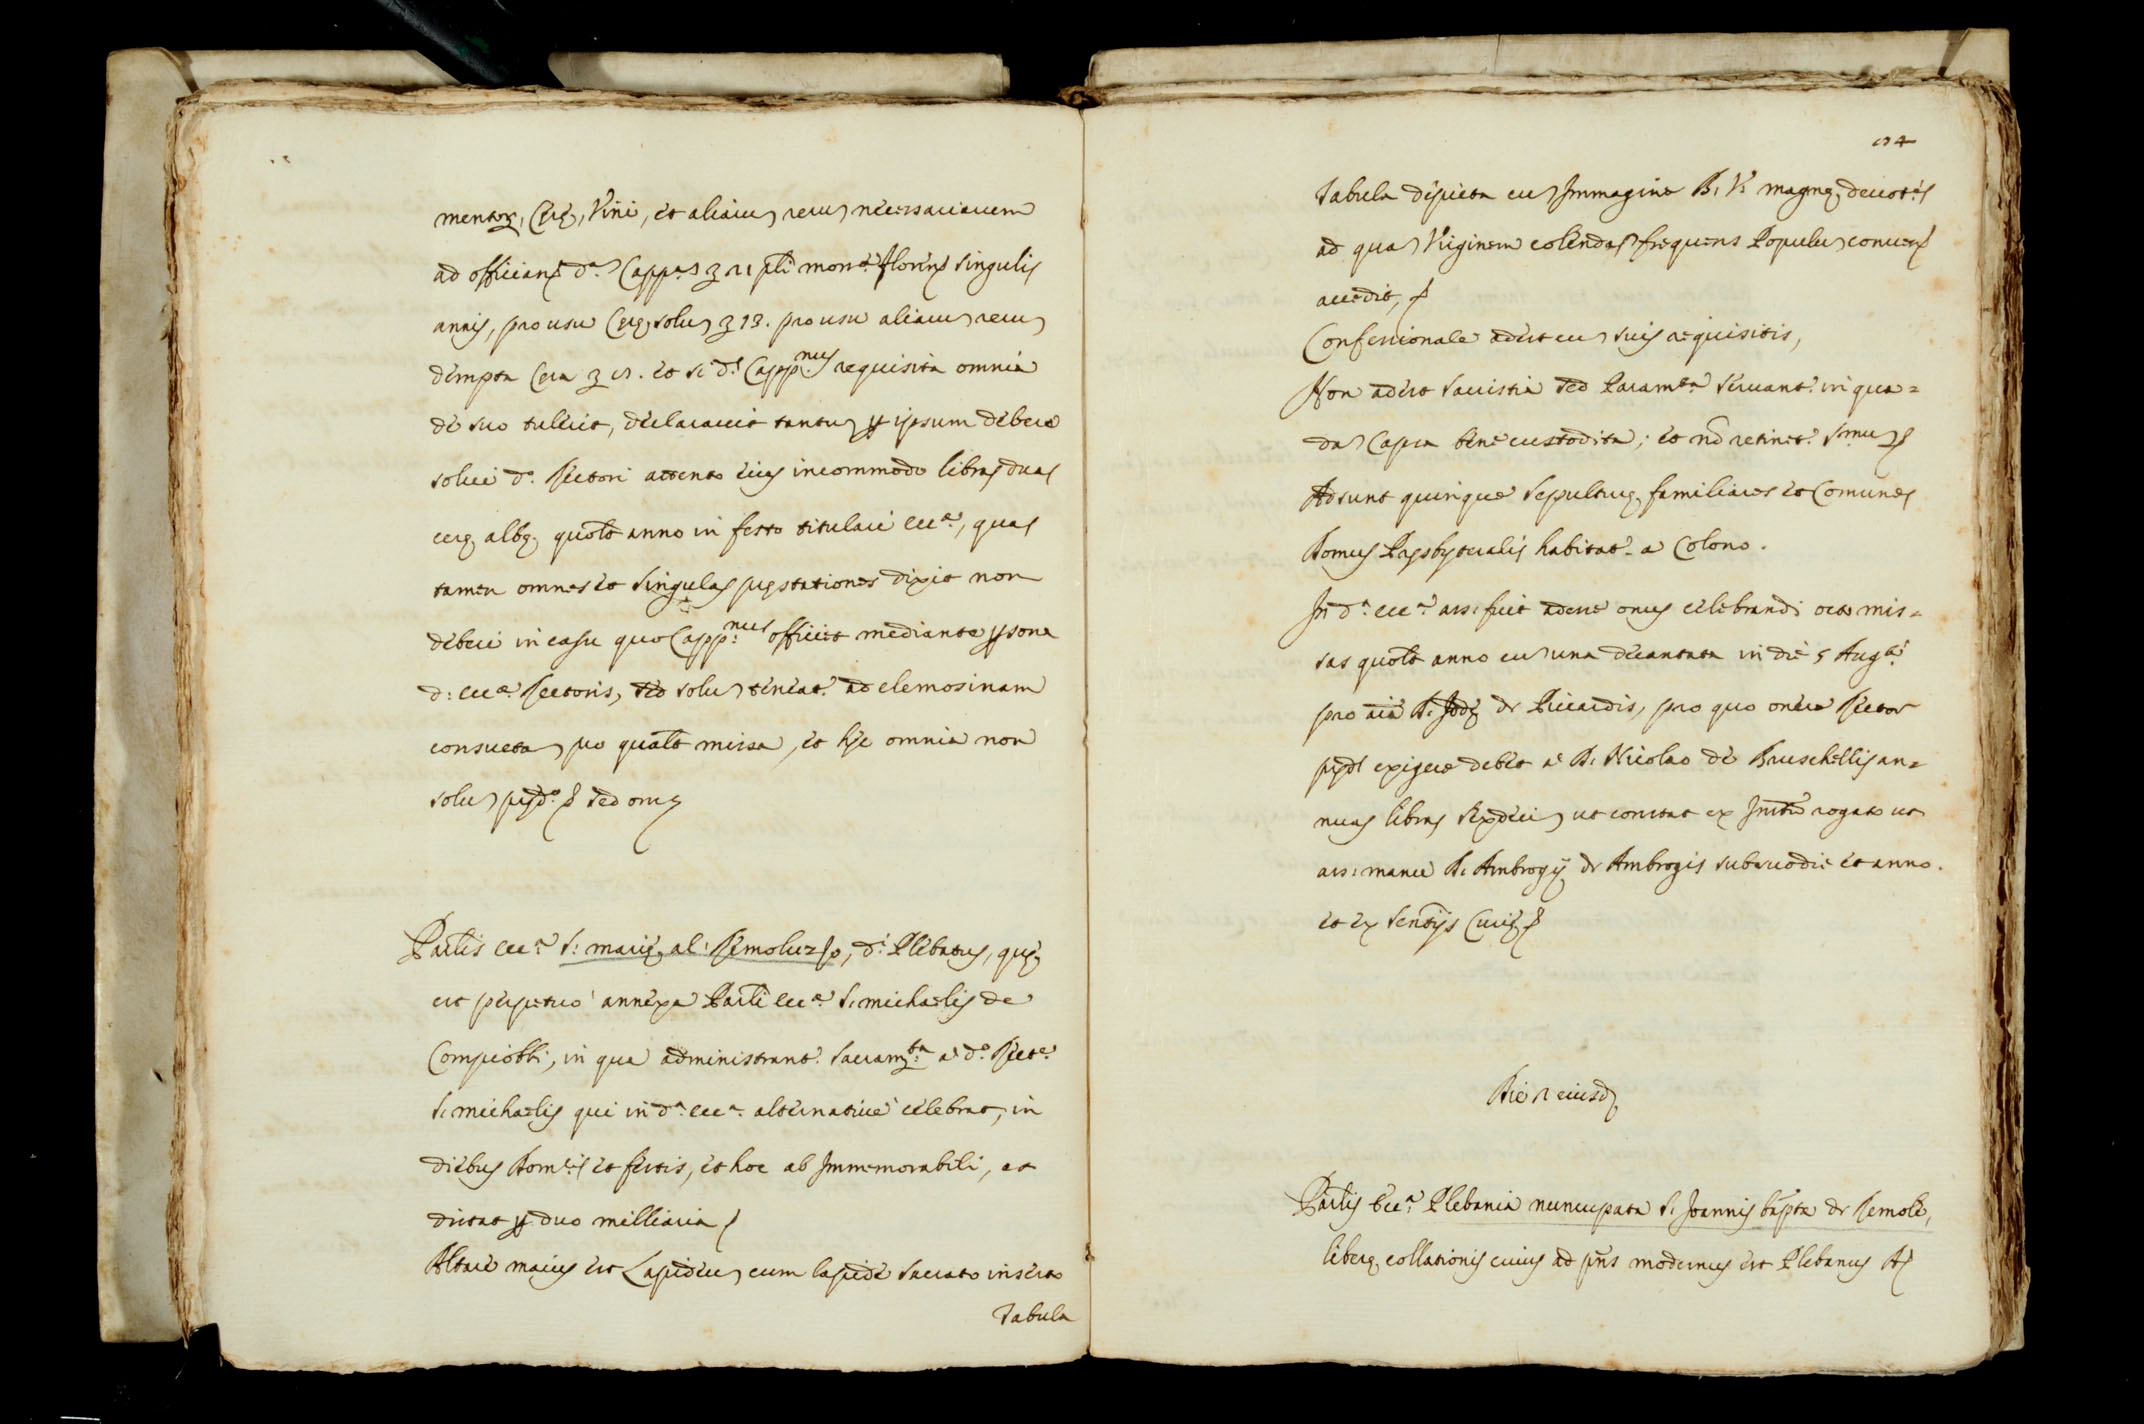 mentor, Cerę, Vini, et aliaru, reru, necessariarum
ad officianđ dᵃ. Cappᵃ. 21 pli monᵗᵉ florenᵉ singulis
annis, pro usu Cerę, solu, 13. pro usu aliaru, reru,
dempta Cera et si dˢ Cappⁿᵘˢ requisita omnia
de suo tulerit, declaravit tantu, ipsum debere
solvi dᵒ. Rectori attento eius incommodo libras duas
cerę albę quolt anno in festo titulari eccᵉ, quas
tamen omnes et singulas pręstationes dixit non
deberi in casu quo Cappⁿᵘˢ officiet mediante psona
d: eccᵉ. Rectoris, sed solu, teneat. ad elemosinam
consueta, pro qualt missa, et hęc omnia non
solu, sed om
Parlis eccᵃ. S: marię al: Remoluzzo, dⁱ Plebatus, quę
est perpetuo annexa Parli eccᵉ S. michaelis de
Compiobbi, in qua administrant. Sacramᵗᵃ a dᵒ. Rectᵉ.
S. michaelis qui in dᵃ. eccᵃ. alternative celebrat, in
diebus Domⁱˢ et festis, et hoc ab Immemorabili, et
distat p duo milliaria
Altare maius est Lapideu, cum lapide sacrato inserto
Tabula
134
Tabula depicta cu, Immagine B. V. magnę devotⁱˢ
ad qua, Virginem colenda, frequens Populu, conven
accedit,
Confessionale adest cu, suis requisitis,
Non adest sacristia sed Paramᵗᵃ servant. in qua=
da, Capsa bene custodita; et no retinet. Sᵐᵘ
Adsunt quinque sepulturę familiares et Comunes
Domus Pręsbyteralis habitat. a Colono.
In dᵃ. eccᵃ. ass: fuit adesse onus celebrandi octo mis=
sas quolt anno cu, una decantata in die 5 Augᵗⁱ
pro aia D. de Ricardis, pro quo onere Rector
exigere debet a D. Nicolao de Bruschellis an=
nuas libras sexdeci, ut constat ex Instro rogato ut
ass: manu D. Ambrogij de Ambrogis sub suo die et anno.
et ex sentijs
Die 21 eiusd
Parlis Eccᵃ. Plebania nuncupata S. Joannis bapta de Remole,
liberę collationis cuius ad pns modernus est Plebanus